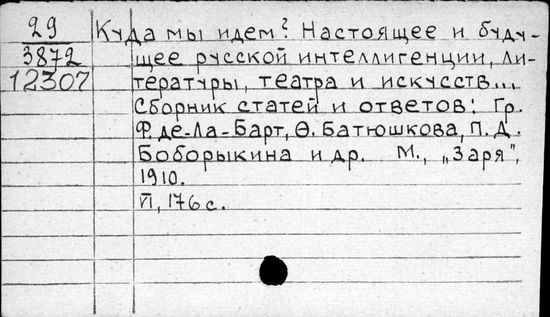 29 Куда мы идем? Настоящее и буду-
3872 щее русской интеллигенции, ли-
12307 тературы, театра и искусств...
Сборник статей и ответов: Гр.
Ф. де-Ла-Барт, Ѳ. Батюшкова, П. Д.
Боборыкина и др. М., „Заря",
1910.
VI, 176 с.